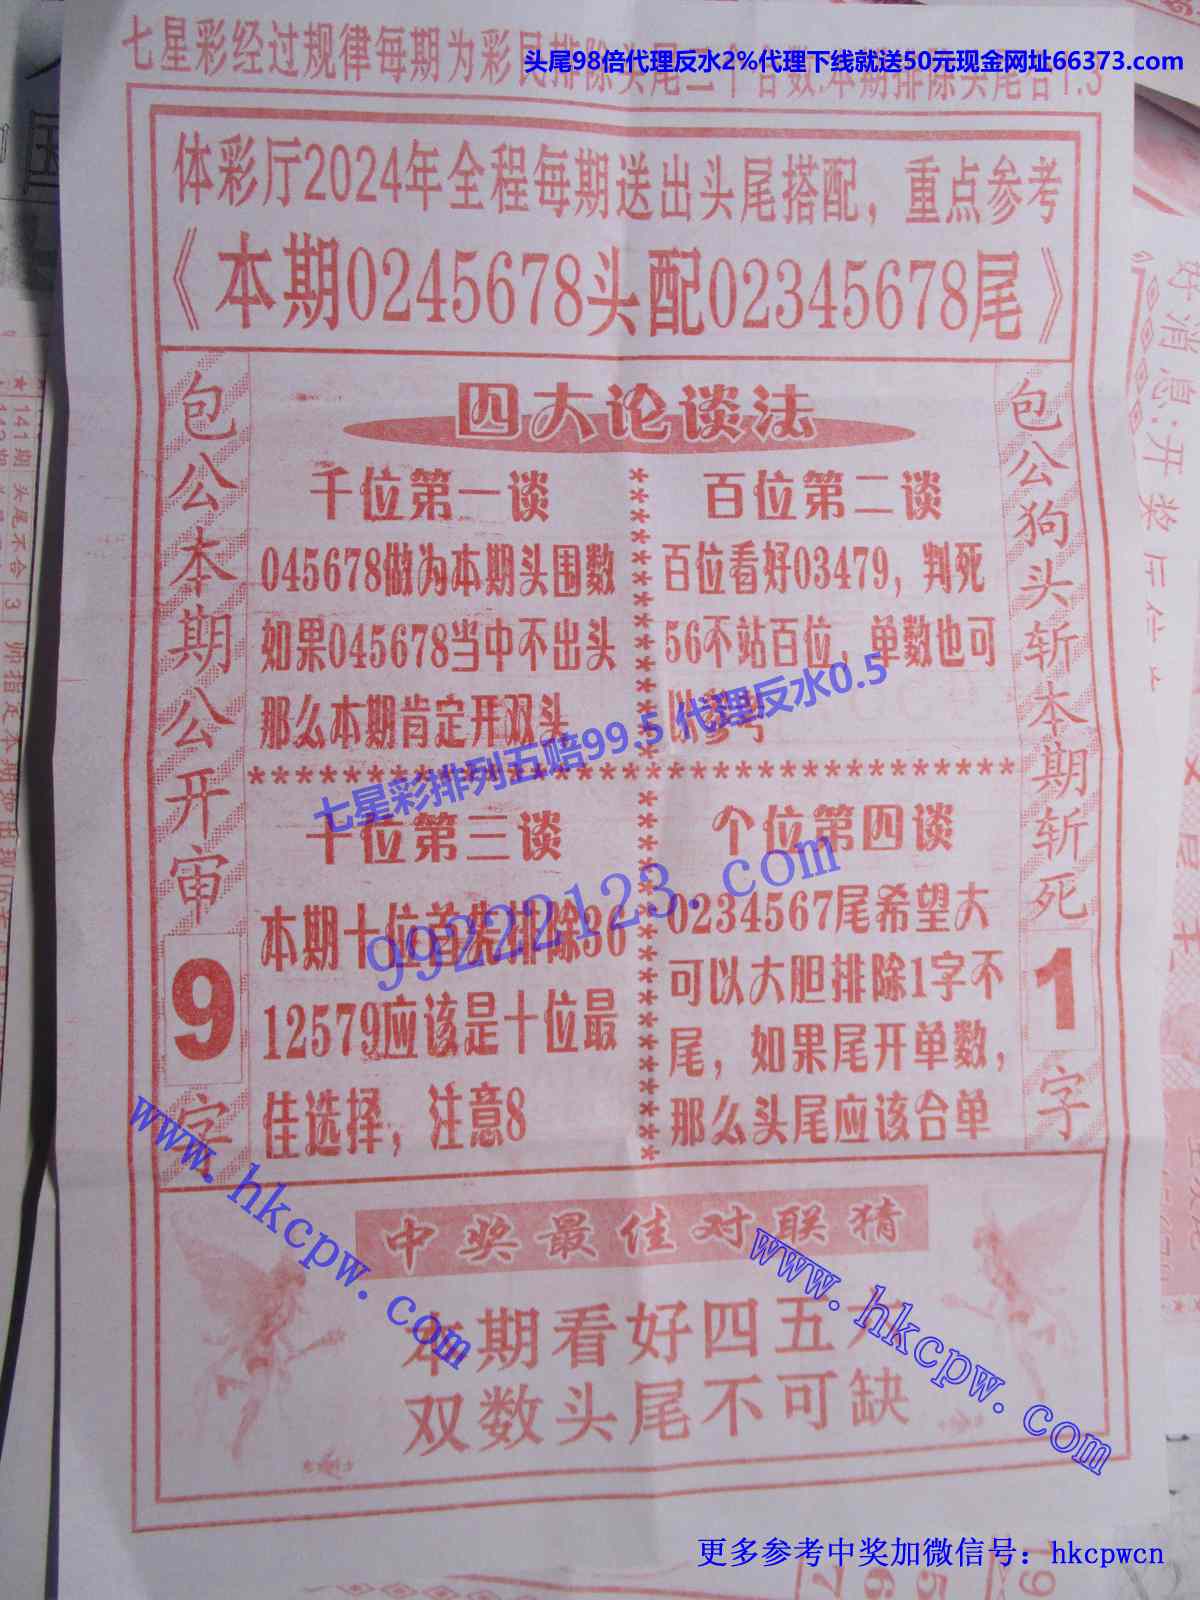 头尾98倍代理反水2%代理下线就送50元现金网址66373.com
七星彩经过规律每期为彩民排除头尾二个合数:本期排除头尾合1.3
体彩厅2024年全程每期送出头尾搭配，重点参考
《本期0245678头配02345678尾》
包公本期公开审
9
字
四大论谈法
千位第一谈
045678做为本期头围数
如果045678当中不出头
那么本期肯定开双头
百位第二谈
百位看好03479，判死
56不站百位，单数也可
以参考
七星彩排列五赔99.5 代理反水0.5
99222123.com
十位第三谈
本期十位首先排除36
12579应该是十位最
佳选择，注意8
个位第四谈
0234567尾希望大
可以大胆排除1字不
尾，如果尾开单数，
那么头尾应该合单
包公狗头斩本期斩死
1
字
www.hkcpw.com
www.hkcpw.com
中奖最佳对联猜
本期看好四五六
双数头尾不可缺
更多参考中奖加微信号：hkcpwcn
好消息:开奖